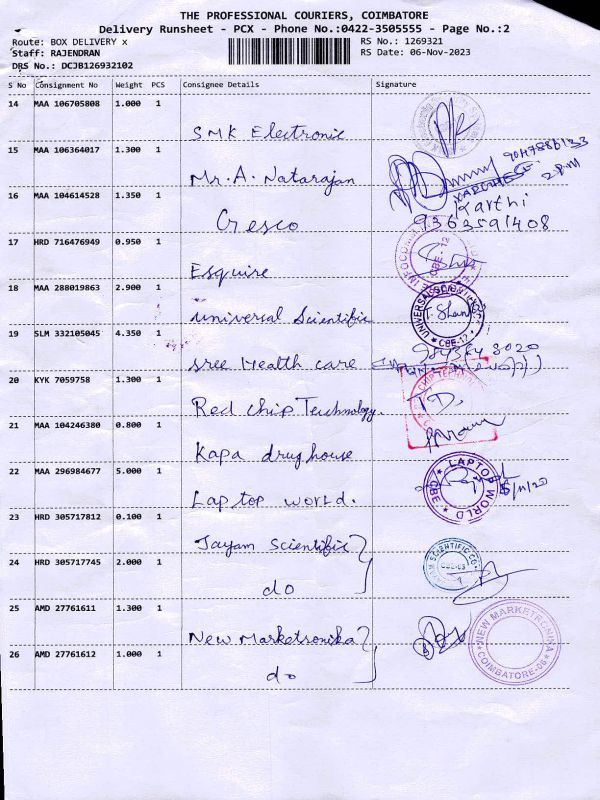 THE PROFESSIONAL COURIERS, COIMBATORE
Delivery Runsheet - PCX - Phone No.:0422-3505555 - Page No.:2
Route: BOX DELIVERY x RS No.: 1269321
Staff: RAJENDRAN RS Date: 06-Nov-2023
DRS No.: DCJB126932102
S No Consignment No Weight PCS Consignee Details Signature
14 MAA 106705808 1.000 1
SMK Electronic
15 MAA 106364017 1.300 1
Mr. A. Natarajan
2 PM
16 MAA 104614528 1.350 1
Karthi
Cresco 9363591408
17 HRD 716476949 0.950 1
CBE-12
Esquire
18 MAA 288019863 2.900 1
universal Scientific
UNIVERSAL SCIENTIFIC
CBE-12
19 SLM 332105045 4.350 1
sree Health care
20 KYK 7059758 1.300 1
Red chip Technology.
T.D.
21 MAA 104246380 0.800 1
Kapa drug house
22 MAA 296984677 5.000 1
Laptop world.
LAPTOP WORLD
CBE
23 HRD 305717812 0.100 1
Jayam Scientific
24 HRD 305717745 2.000 1
do
25 AMD 27761611 1.300 1
New Marketronika
NEW MARKETRONIKA
COIMBATORE-06
26 AMD 27761612 1.000 1
do